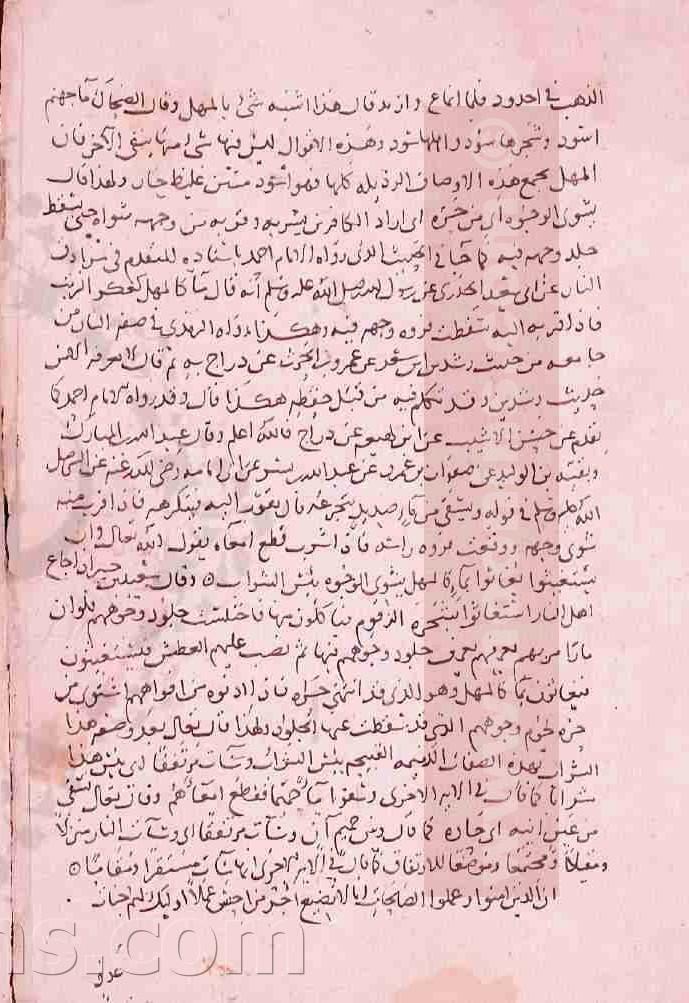 الذهب في اخدود فلما انماع وازبد قال هذا اشبه شئ بالمهل وقال الضحاك ماجهنم
اسود وشجرها سود واهلها سود وهذه الاقوال ليس فيها شئ منها ينفي الآخر فان
المهل يجمع هذه الاوصاف الرذيله كلها فهو اسود منتن غليظ حار ولهذا قال
يشوى الوجوه اى من حره اى اراد الكافر ان يشربه وقربه من وجهه شواه حتى تسقط
جلد وجهه فيه كما جا في الحديث الذى رواه الامام احمد باسناده المتقدم في سرادق
النار عن ابى سعيد الخدرى عن رسول الله صلى الله عليه وسلم أنه قال ماء كالمهل كعكر الزيت
فاذا قربه اليه سقطت فروة وجهه فيه وهكذا رواه الترمذى في صفه النار من
جامعه من حديث رشدين ابن سعد عن عمرو بن الحرث عن دراج به ثم قال لا نعرفه الا من
حديث رشدين وقد تكلم فيه من قبل حفظه هكذا قال وقد رواه الامام احمد كما
تقدم عن حسن الاشيب عن ابن لهيعه عن دراج فالله اعلم وقال عبد الله بن المبارك
وبقيه بن الوليد عن صفوان بن عمرو عن عبد الله بن بسر عن ابى امامه رضى الله عنه عن النبي صلى
الله عليه وسلم في قوله ويسقى من ماء صديد يتجرعه قال يقرب اليه فيتكرهه فاذا قرب منه
شوى وجهه ووقعت فروة راسه فاذا شرب قطع امعاه يقول الله تعالى وان
يستغيثوا يغاثوا بماء كالمهل يشوى الوجوه بئس الشراب ٥ وقال سعيد بن جبير اذا جاع
اهل النار استغاثوا بشجرة الزقوم فياكلون منها فاختلست جلود وجوههم فلو ان
مارا مر بهم يعرفهم لعرف جلود وجوههم فيها ثم نصب عليهم العطش فيستغيثون
فيغاثون بماء كالمهل وهو الذى قد انتهى حره فاذا ادنوه من افواههم اشتوى من
حره لحوم وجوههم التى قد سقطت عنها الجلود ولهذا قال تعالى بعد وصفه هذا
الشراب بهذه الصفات الذميمه القبيحه بئس الشراب وساءت مرتفقا اى بئس هذا
شرابا كما قال في الايه الاخرى وسقوا ماء حميما فقطع امعاءهم وقال تعالى تسقى
من عين انيه اى حارة كما قال وبين حميم آن وساءت مرتفقا اى وساءت النار منزلا
ومقيلا ومجتمعا وموضعا للارتفاق كما قال في الايه الاخرى انها ساءت مستقرا ومقاما ٥
ان الذين امنوا وعملوا الصالحات انا لا نضيع اجر من احسن عملا اوليك لهم جنات
عدن
ns.com